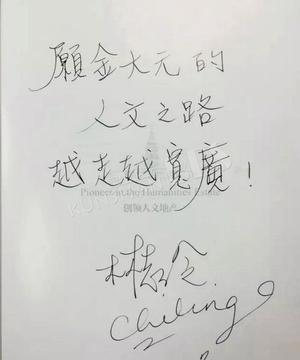 願金大元的
人文之路
越走越寬廣！
Pioneer in the Humanities Estate
创领人文地产
林志玲
Chiling